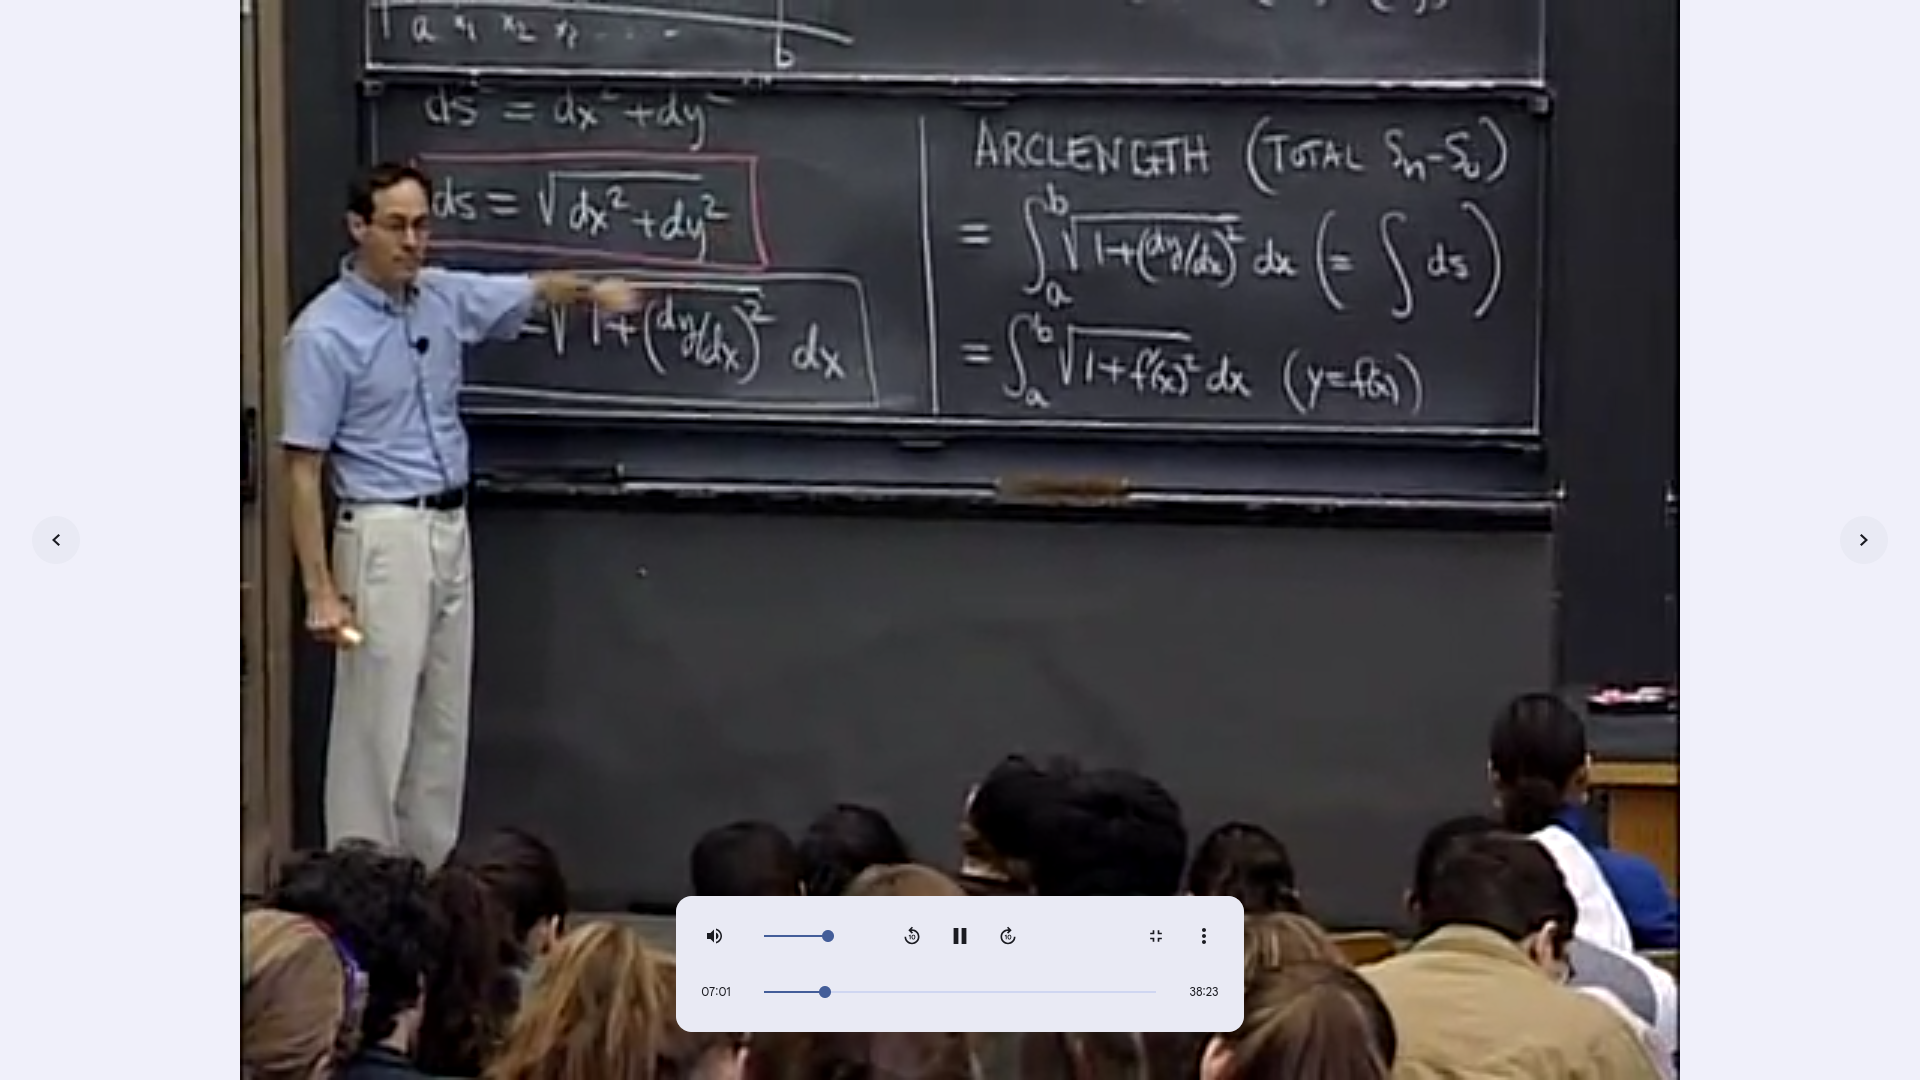 a x₁ x₂ x₃ . . . b
ds² = dx² + dy²
ds = √(dx² + dy²)
= √(1 + (dy/dx)²) dx
ARCLENGTH (TOTAL Sₙ - S₀)
= ∫ₐᵇ √(1 + (dy/dx)²) dx (= ∫ ds)
= ∫ₐᵇ √(1 + f'(x)²) dx (y = f(x))
10 10
07:01 38:23